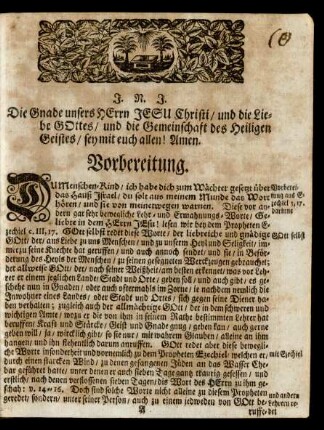 (6)
J. N. J.
Die Gnade unsers HErrn JESU Christi/ und die Lie-
be GOttes/ und die Gemeinschaft des Heiligen
Geistes/ sey mit euch allen! Amen.
Vorbereitung.
DU Menschen-Kind/ ich habe dich zum Wächter gesetzt über
das Hauß Israel/ du solt aus meinem Munde das Wort
hören/ und sie von meinetwegen warnen. Diese vor an-
dern gar sehr bewegliche Lehr- und Ermahnungs-Worte/ Ge-
liebte in dem HErrn JEsu! lesen wir bey dem Propheten E-
zechiel c. III, 17. GOtt selbst redet diese Worte/ der liebreiche und gnädige
GOtt/ der/ aus Liebe zu uns Menschen/ und zu unserm Heyl und Seligkeit/ im-
mer zu seine Knechte hat geruffen/ und auch annoch sendet/ und sie/ in Beför-
derung des Heyls der Menschen/ zu seinen gesegneten Werckzeugen gebrauchet;
der allweise GOtt/ der/ nach seiner Weißheit/ am besten erkennet/ was vor Leh-
rer er einem jeglichen Lande/ Stadt und Orte/ geben soll/ und auch gibt/ es ge-
schehe nun in Gnaden/ oder auch oftermahls im Zorne/ je nachdem nemlich die
Inwohner eines Landes/ oder Stadt und Ortes/ sich gegen seine Diener ha-
ben verhalten; zugleich auch der allmächtige GOtt/ der in dem schweren und
wichtigen Amte/ wozu er die von ihm in seinem Rathe bestimmten Lehrer hat
beruffen/ Kraft und Stärcke/ Geist und Gnade gnug/ geben kan/ auch gerne
geben will/ ja/ würcklich gibt/ so sie nur/ mit wahrem Glauben/ alleine an ihm
hangen/ und ihn flehentlich darum anruffen. Dieser GOtt redet die obige beweg-
liche Worte insonderheit und vornemlich zu dem Propheten Ezechiel/ welchen er,
durch einen starcken Wind/ zu denen gefangenen Jüden an das Wasser Che-
bar geführet hatte/ unter denen er auch sieben Tage gantz traurig gesessen/ und
erstlich/ nach denen verflossenen sieben Tagen/ des Wort des HErrn zu ihm ge-
schah: v. 14-16. Doch sind solche Worte nicht alleine zu diesem Propheten
geredet/ sondern/ unter seiner Person/ auch zu einem jedweden von GOtt be-
A
ruffe-
GOtt selbst
mit Ezechiel
und andern
Lehrern